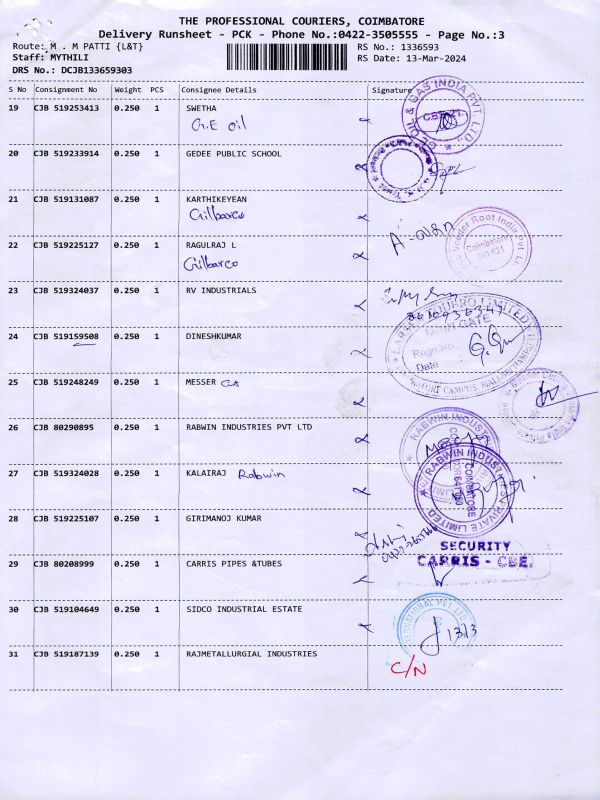 THE PROFESSIONAL COURIERS, COIMBATORE
Delivery Runsheet - PCK - Phone No.:0422-3505555 - Page No.:3
Route: M . M PATTI {L&T}
RS No.: 1336593
Staff: MYTHILI
RS Date: 13-Mar-2024
DRS No.: DCJB133659303
S No Consignment No Weight PCS Consignee Details Signature
19 CJB 519253413 0.250 1 SWETHA
G.E oil
GE OIL & GAS INDIA PVT. LTD.
20 CJB 519233914 0.250 1 GEDEE PUBLIC SCHOOL
21 CJB 519131087 0.250 1 KARTHIKEYEAN
Gilbarco
Veeder Root India Pvt. Ltd
Coimbatore
641 021
22 CJB 519225127 0.250 1 RAGULRAJ L
Gilbarco
23 CJB 519324037 0.250 1 RV INDUSTRIALS
24 CJB 519159508 0.250 1 DINESHKUMAR
LARSEN & TOUBRO LIMITED
MAIN GATE
Regn.No.
Date
25 CJB 519248249 0.250 1 MESSER
26 CJB 80290895 0.250 1 RABWIN INDUSTRIES PVT LTD
RABWIN INDUSTRIES
27 CJB 519324028 0.250 1 KALAIRAJ Rabwin
RABWIN INDUSTRIES PRIVATE LIMITED
COIMBATORE
28 CJB 519225107 0.250 1 GIRIMANOJ KUMAR
SECURITY
CARRIS - CBE.
29 CJB 80208999 0.250 1 CARRIS PIPES &TUBES
30 CJB 519104649 0.250 1 SIDCO INDUSTRIAL ESTATE
13/3
31 CJB 519187139 0.250 1 RAJMETALLURGIAL INDUSTRIES
C/N